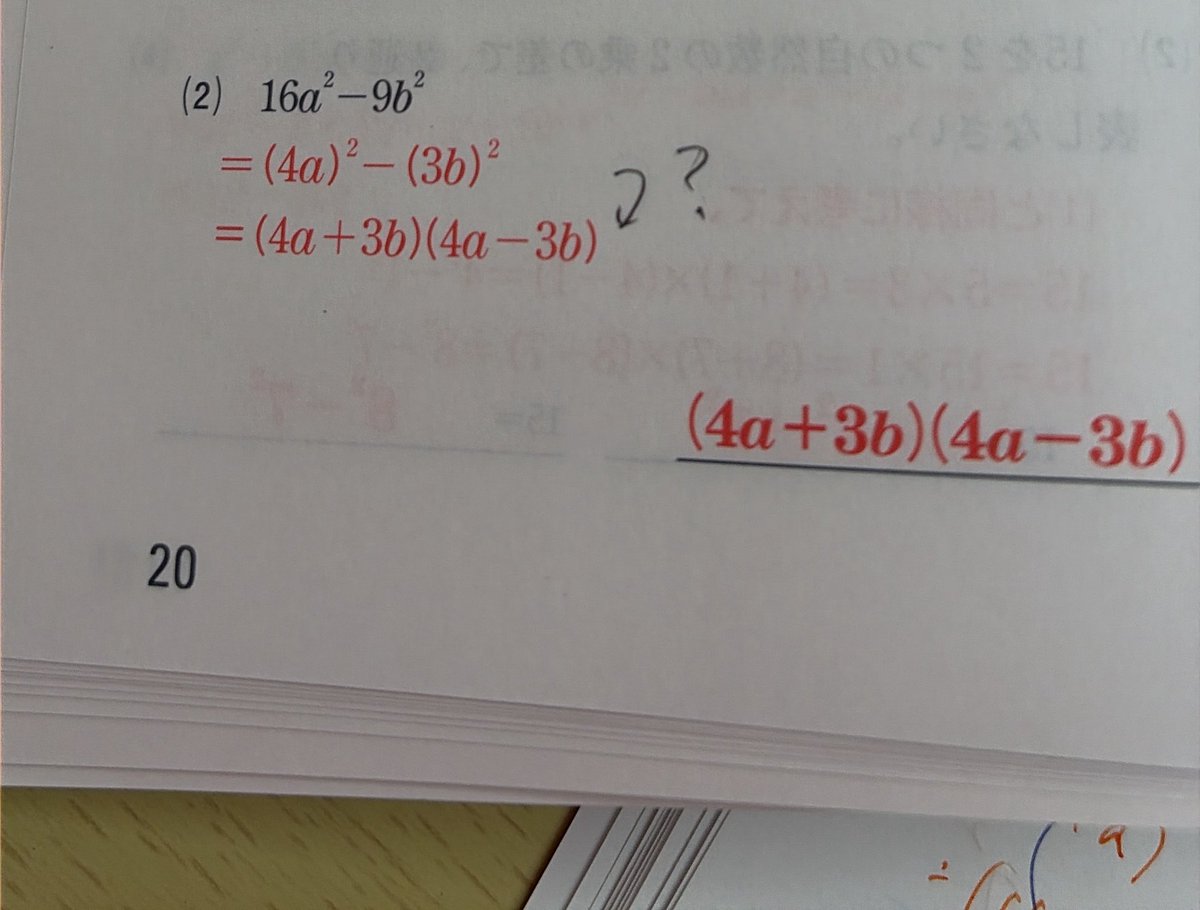 (2) 16a²−9b²
=(4a)²−(3b)²
=(4a+3b)(4a−3b)
?
(4a+3b)(4a−3b)
20